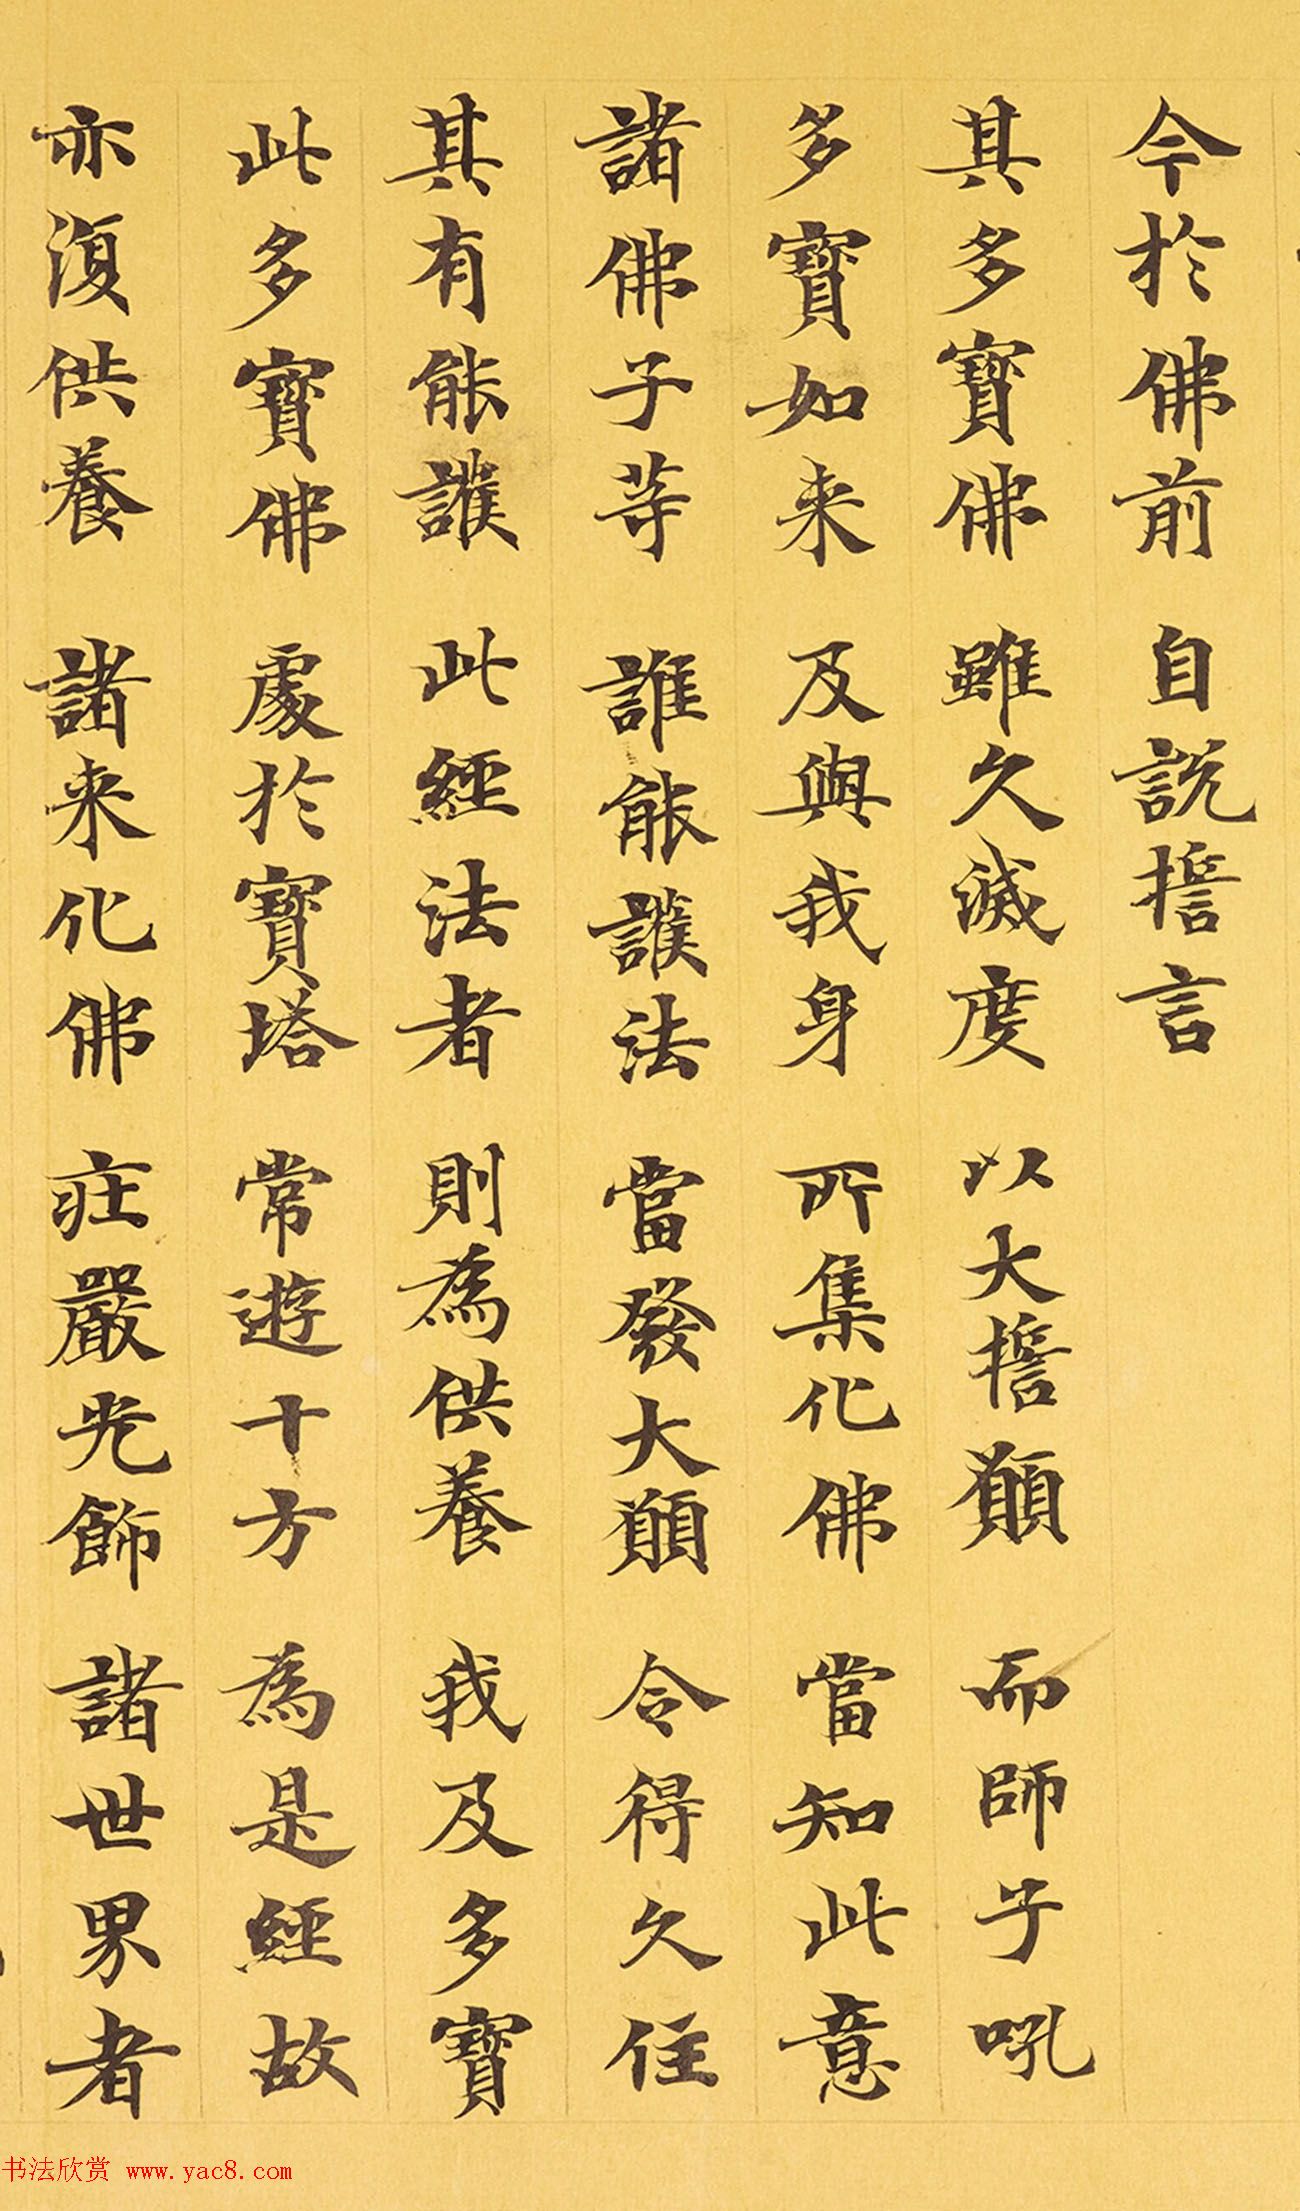 今於佛前 自說誓言
其多寶佛 雖久滅度 以大誓願 而師子吼
多寶如來 及與我身 所集化佛 當知此意
諸佛子等 誰能護法 當發大願 令得久住
其有能護 此經法者 則為供養 我及多寶
此多寶佛 處於寶塔 常遊十方 為是經故
亦復供養 諸來化佛 莊嚴光飾 諸世界者
书法欣赏 www.yac8.com